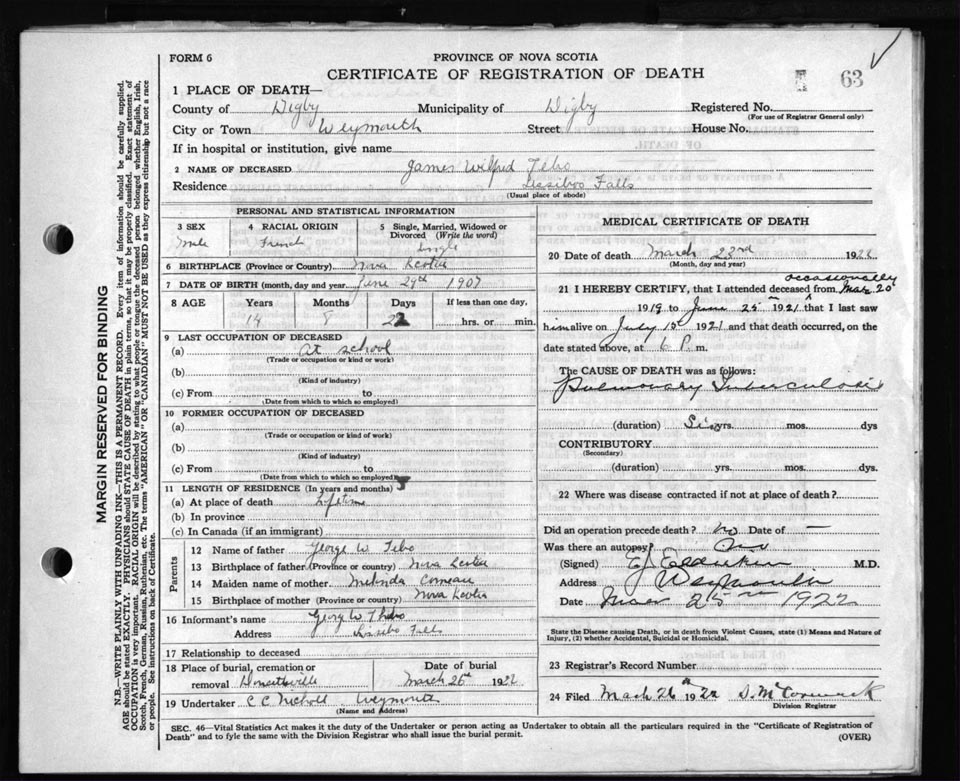 FORM 6
PROVINCE OF NOVA SCOTIA
CERTIFICATE OF REGISTRATION OF DEATH
63
1 PLACE OF DEATH—
County of Digby Municipality of Digby Registered No.
(For use of Registrar General only)
City or Town Weymouth Street House No.
If in hospital or institution, give name
2 NAME OF DECEASED James Wilfred Tebo
Residence Falls
(Usual place of abode)
PERSONAL AND STATISTICAL INFORMATION
3 SEX 4 RACIAL ORIGIN 5 Single, Married, Widowed or Divorced (Write the word)
Male French Single
6 BIRTHPLACE (Province or Country) Nova Scotia
7 DATE OF BIRTH (month, day and year) June 29th 1907
8 AGE Years Months Days If less than one day,
14 8 22 hrs. or min.
9 LAST OCCUPATION OF DECEASED
(a) At school
(Trade or occupation or kind or work)
(b)
(Kind of industry)
(c) From to
(Date from which to which so employed)
10 FORMER OCCUPATION OF DECEASED
(a)
(Trade or occupation or kind of work)
(b)
(Kind of industry)
(c) From to
(Date from which to which so employed)
11 LENGTH OF RESIDENCE (In years and months)
(a) At place of death Lifetime
(b) In province
(c) In Canada (if an immigrant)
Parents
12 Name of father George W Tebo
13 Birthplace of father (Province or country) Nova Scotia
14 Maiden name of mother Melinda Comeau
15 Birthplace of mother (Province or country) Nova Scotia
16 Informant's name George W Thebo
Address Falls
17 Relationship to deceased
18 Place of burial, cremation or removal Date of burial
March 26th 1922
19 Undertaker C C Nicholl Weymouth
(Name and Address)
MEDICAL CERTIFICATE OF DEATH
20 Date of death March 23rd 1922
(Month, day and year)
occasionally
21 I HEREBY CERTIFY, that I attended deceased from Mar 20
1919 to June 25th 1921 that I last saw
him alive on July 19 1921 and that death occurred, on
date stated above, at 6 P. m.
The CAUSE OF DEATH was as follows:
Pulmonary Tuberculosis
(duration) Six yrs. mos. dys
CONTRIBUTORY
(Secondary)
(duration) yrs. mos. dys.
22 Where was disease contracted if not at place of death?
Did an operation precede death? no Date of —
Was there an autopsy? no
(Signed) M.D.
Address Weymouth
Date Mar 25th 1922
State the Disease causing Death, or in death from Violent Causes, state (1) Means and Nature of
Injury, (2) whether Accidental, Suicidal or Homicidal.
23 Registrar's Record Number
24 Filed March 26th 1922 D. McCormick
Division Registrar
SEC. 46—Vital Statistics Act makes it the duty of the Undertaker or person acting as Undertaker to obtain all the particulars required in the "Certificate of Registration of
Death" and to fyle the same with the Division Registrar who shall issue the burial permit.
(OVER)
MARGIN RESERVED FOR BINDING
N.B.—WRITE PLAINLY WITH UNFADING INK—THIS IS A PERMANENT RECORD. Every item of information should be carefully supplied.
AGE should be stated EXACTLY. PHYSICIANS should STATE CAUSE OF DEATH in plain terms, so that it may be properly classified. Exact statement of
OCCUPATION is very important. RACIAL ORIGIN will be described by stating to what people or tongue the deceased person belonged whether English, Irish,
Scotch, French, German, Russian, Ruthenian, etc. The terms "AMERICAN" OR "CANADIAN" MUST NOT BE USED as they express citizenship but not a race
or people. See instructions on back of Certificate.